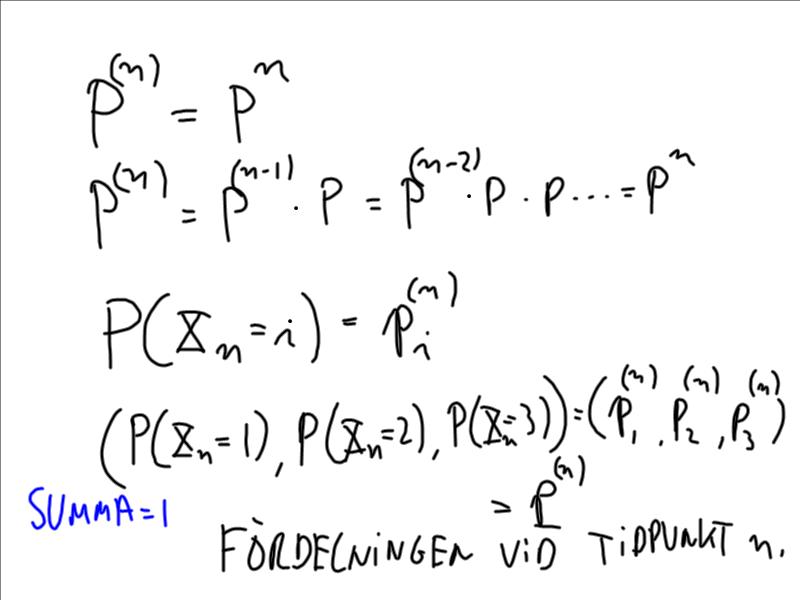 P^(n) = P^n
P^(n) = P^(n-1) · P = P^(n-2) · P · P ... = P^n
P(X_n = i) = p_i^(n)
(P(X_n=1), P(X_n=2), P(X_n=3)) = (p_1^(n), p_2^(n), p_3^(n))
= p^(n)
SUMMA=1
FÖRDELNINGEN VID TIDPUNKT n.